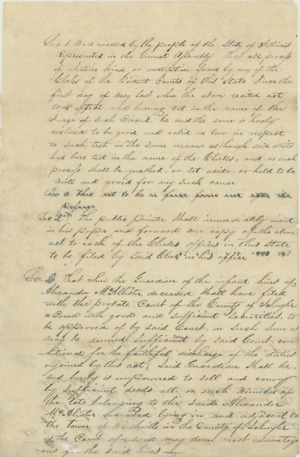 Sec 1 Be it enacted by the people of the State of Illinois
represented in the General Assembly That all process
of whatever kind, or issued by any of the
Clerks of the Circuit Courts of this State since the
first day of May last when the above recited act
took effect and bearing test in the name of the
Judge of such Circuit. Be and the same is hereby
declared to be good and valid in law in respect
to such test in the same manner as though said writs
had bore test in the name of the Clerks, and no such
process shall be quashed, or set aside, or held to be
null and void for any such cause
this act to be in force from and after its
passage
Sec 2nd The public printer shall immediately insert
in his paper and forward one copy of the above
act to each of the Clerks offices in this State
to be filed by said Clerk in his office
Sec 3 That when the Guardian of the infant heirs of
Alexander McAlister deceased shall have filed
with the Probate Court of the County of Schuyler
a Bond with good and sufficient securities to
be approved of by said Court, in such sum as
may be deemed sufficient by said Court, con
ditioned for the faithful discharge of the duties
enjoined by this act; said Guardian shall be
and hereby is empowered to sell and convey
by sufficient deeds all or such number of
the lots belonging to the said Alexander
McAlister deceased lying in and adjacent to
the Town of Rushville in the County of Schuyler
as the Court aforesaid may deem most advantage
ous for the said heirs